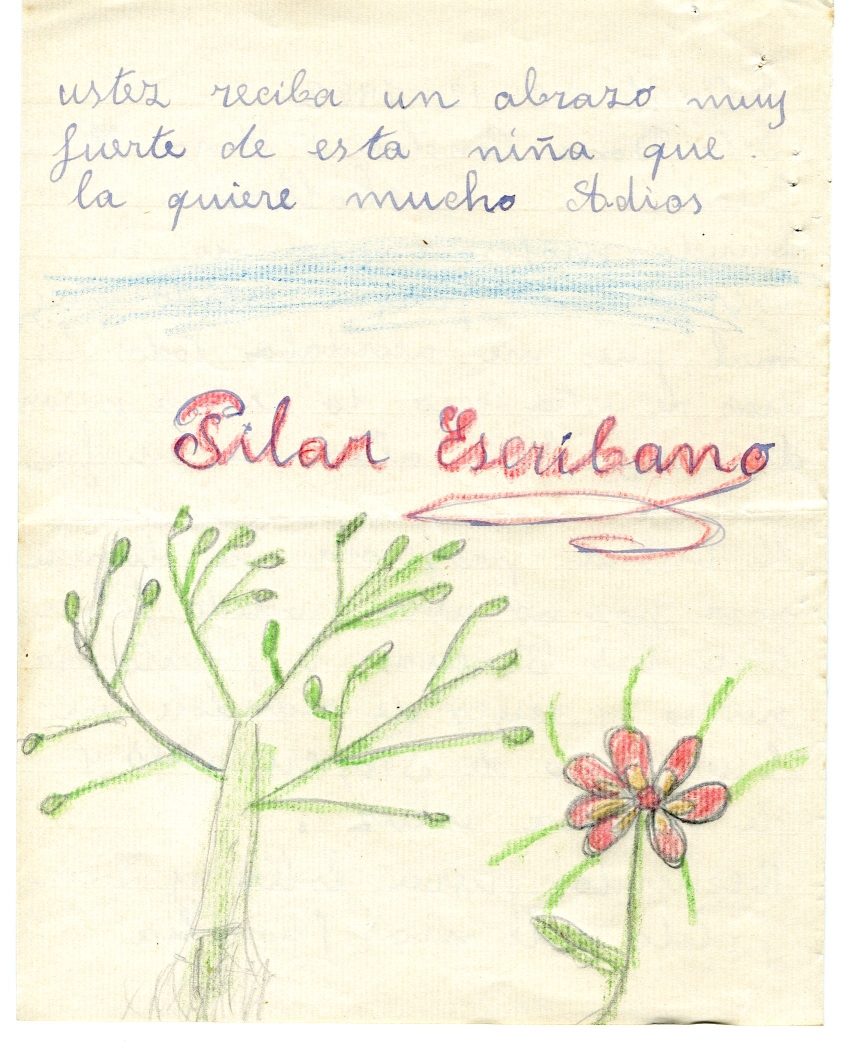 ustez reciba un abrazo muy
fuerte de esta niña que
la quiere mucho Adios
Pilar Escribano